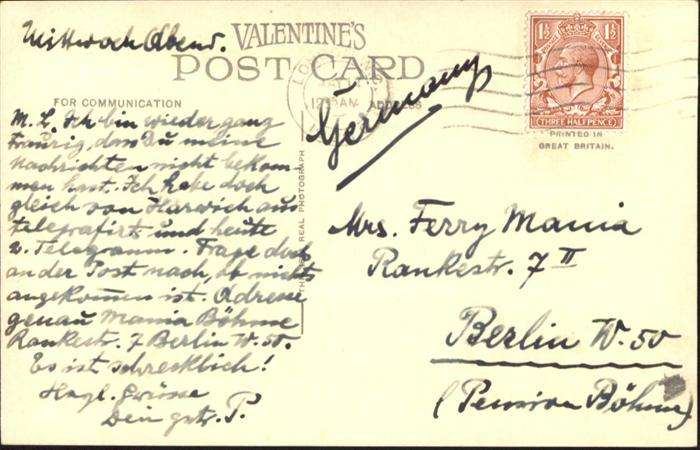 Mittwoch Abend.
VALENTINE'S
POST CARD
FOR COMMUNICATION
ADDRESS
12 30AM
1½ 1½
THREE HALF PENCE
PRINTED IN
GREAT BRITAIN.
REAL PHOTOGRAPH
M. L. Ich bin wieder ganz
traurig, dass Du meine
Nachrichten nicht bekom-
men hast. Ich habe doch
gleich von Harwich aus
telegrafirt und heute
2. Telegramm. Frage doch
an der Post nach, ob nichts
angekommen ist. Adresse
genau Mania Böhme
Rankestr. 7 Berlin W. 50.
Es ist schrecklich!
Hzgl. Grüsse
Dein getr. P.
Germany
Mrs. Ferry Mania
Rankestr. 7 II
Berlin W. 50
(Pension Böhme)